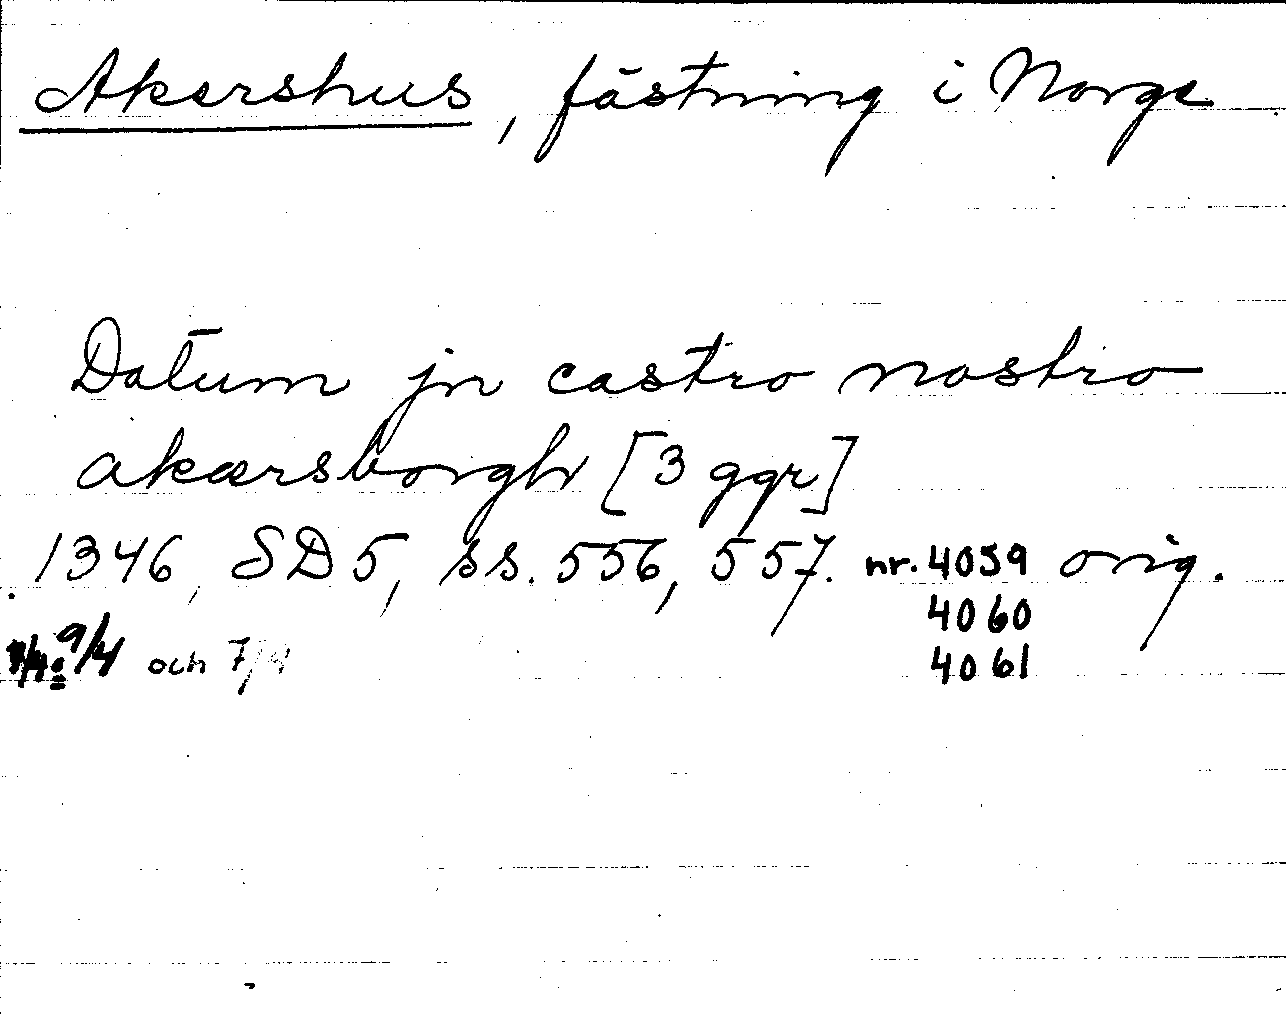 Akershus, fästning i Norge
Datum jn castro nostro
akærsborgh [3 ggr]
1346, SD 5, ss. 556, 557. nr. 4059 orig.
4060
9/4 och 7/4
4061